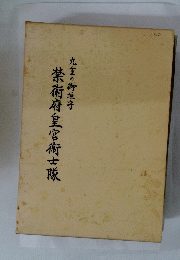 九重の御垣守
禁衛府皇宮衛士隊